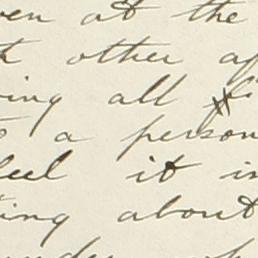 en at the
other
ing all
a person
feel it in
ting about